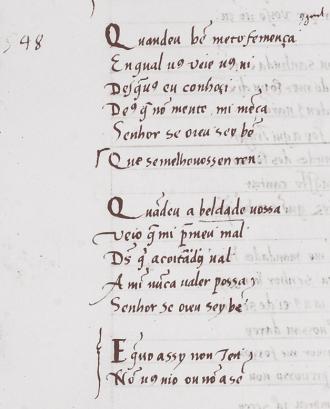 548
Quandeu bẽ meto femença
En qual uꝯ ueio uꝯ ui
Des que uꝯ eu conhoçi
Deꝯ q̃ nõ mente mi mẽça
Senhor se oieu sey bẽ
Que semelhouossen ren
Quãdeu a beldade uossa
Veio q̃ mi p̃meu mal
Dꝯ q̃ a coitãdꝯ ual
A mi nũca ualer possa
Senhor se oieu sey bẽ
E quo assy non Ten
Nõ uꝯ uio ou nõ a sẽ